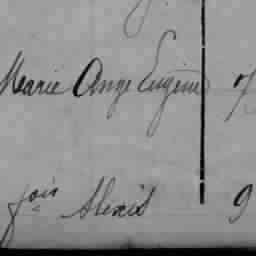 Marie Ange Eugène 7
fois Alexis 9